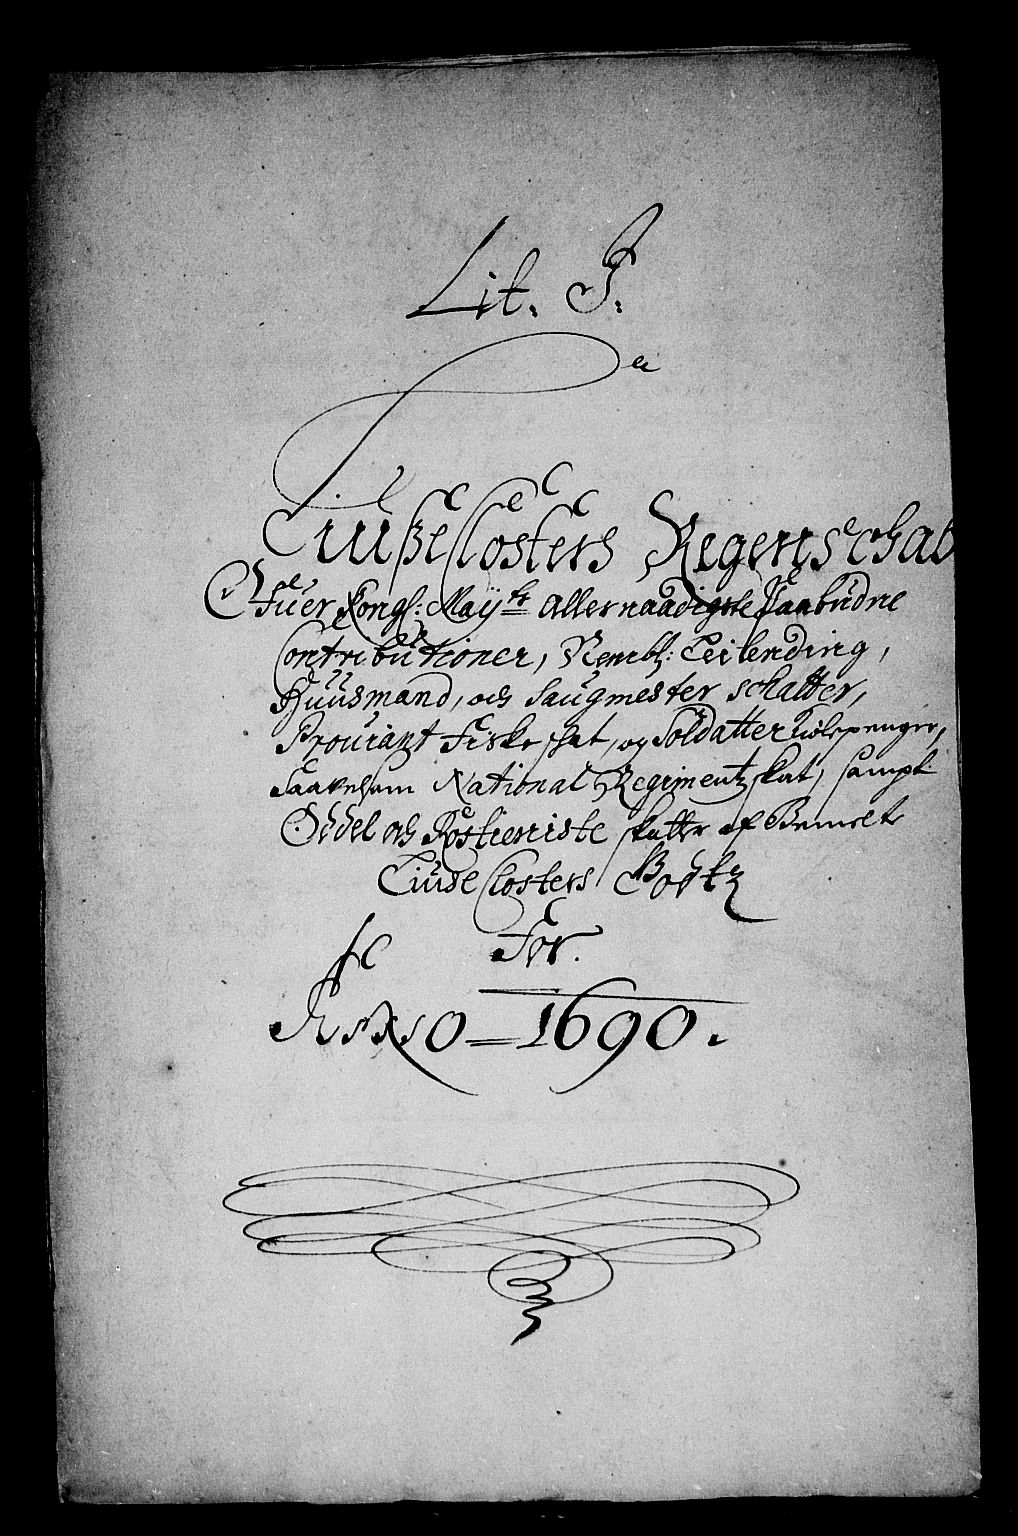 Lit. J.
Liuße Closters Regenschab
Ofuer Kongl: Maÿts allernaadigste Paabudne
Contributioner, Nembl: Leilending,
Huusmand, och Saugmester schatter,
Prouiant Fiske schat, og Soldatter Kiolepenger,
Saauelsom National Regimentz skat, sampt
Oddel och Rostieniste skatter af Bemelte
Liuse Closters Godtz
For.
Anno 1690.